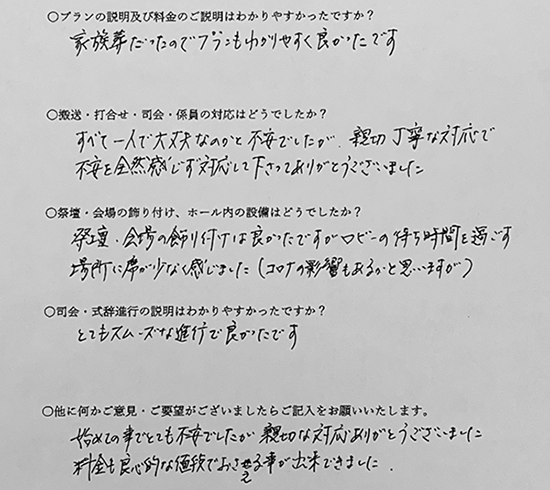 ○プランの説明及び料金のご説明はわかりやすかったですか？
家族葬だったのでプランもわかりやすく良かったです
○搬送・打合せ・司会・係員の対応はどうでしたか？
すべて一人で大丈夫なのかと不安でしたが、親切丁寧な対応で
不安を全然感じず対応して下さってありがとうございました
○祭壇・会場の飾り付け、ホール内の設備はどうでしたか？
祭壇・会場の飾り付けは良かったですがロビーの待ち時間を過ごす
場所に席が少なく感じました（コロナの影響もあるかと思いますが）
○司会・式辞進行の説明はわかりやすかったですか？
とてもスムーズな進行で良かったです
○他に何かご意見・ご要望がございましたらご記入をお願いいたします。
始めての事でとても不安でしたが親切な対応ありがとうございました
料金も良心的な価段でおさえる事が出来できました.